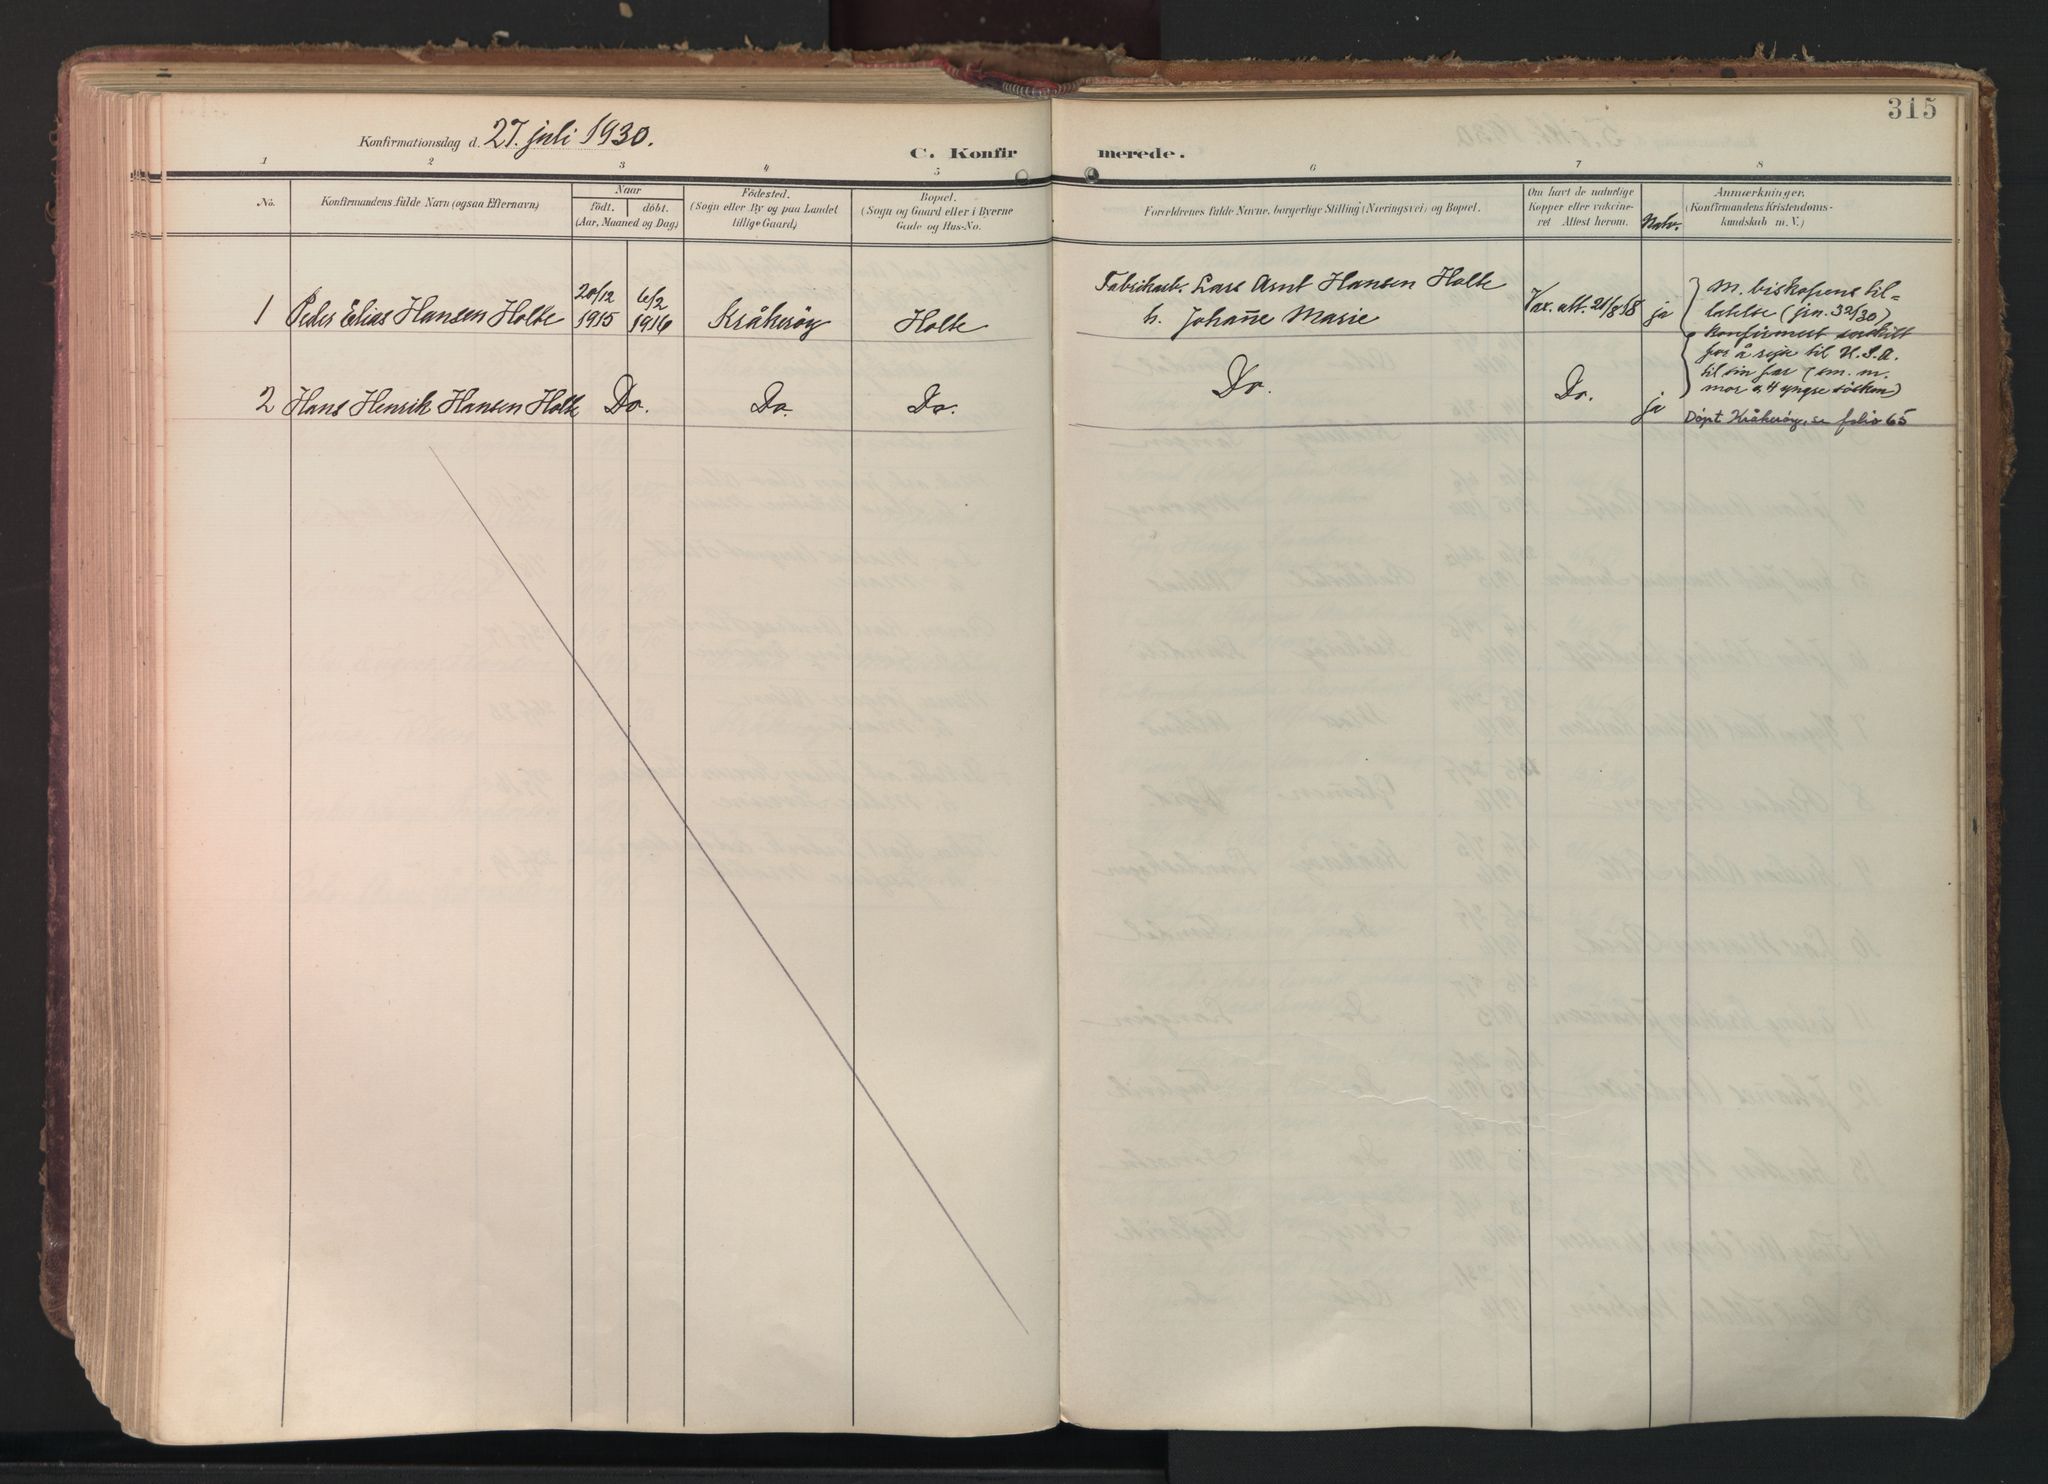 315
Konfirmationsdag d. 27. juli 1930.
C. Konfirmerede.
1 2 3 4 5 6 7 8
No.
Konfirmandens fulde Navn (ogsaa Efternavn)
Naar
födt. döbt.
(Aar, Maaned og Dag)
Födested.
(Sogn eller By og paa Landet
tillige Gaard)
Bopæl.
(Sogn og Gaard eller i Byerne
Gade og Hus-No.
Forældrenes fulde Navne, borgerlige Stilling (Næringsvei) og Bopæl.
Om havt de naturlige
Kopper eller vakcine-
ret Attest herom.
Anmærkninger.
(Konfirmandens Kristendoms-
kundskab m. V.)
1 Peder Elias Hansen Holte 20/12 1915 6/2 1916 Kråkeröy Holte
Fabrikarb. Lars Arnt Hansen Holte
h. Johan̄e Marie
Vax. att. 21/8 18 ja
M. biskopens til-
latelse (jrn. 32/30)
konfirmert særskilt
for å rejse til U.S.A.
til sin far (sm. m.
mor o. 4 yngre sösken)
2 Hans Henrik Hansen Holte Do. Do. Do. Do. Do. ja
Döpt Kråkeröy, se folio 65